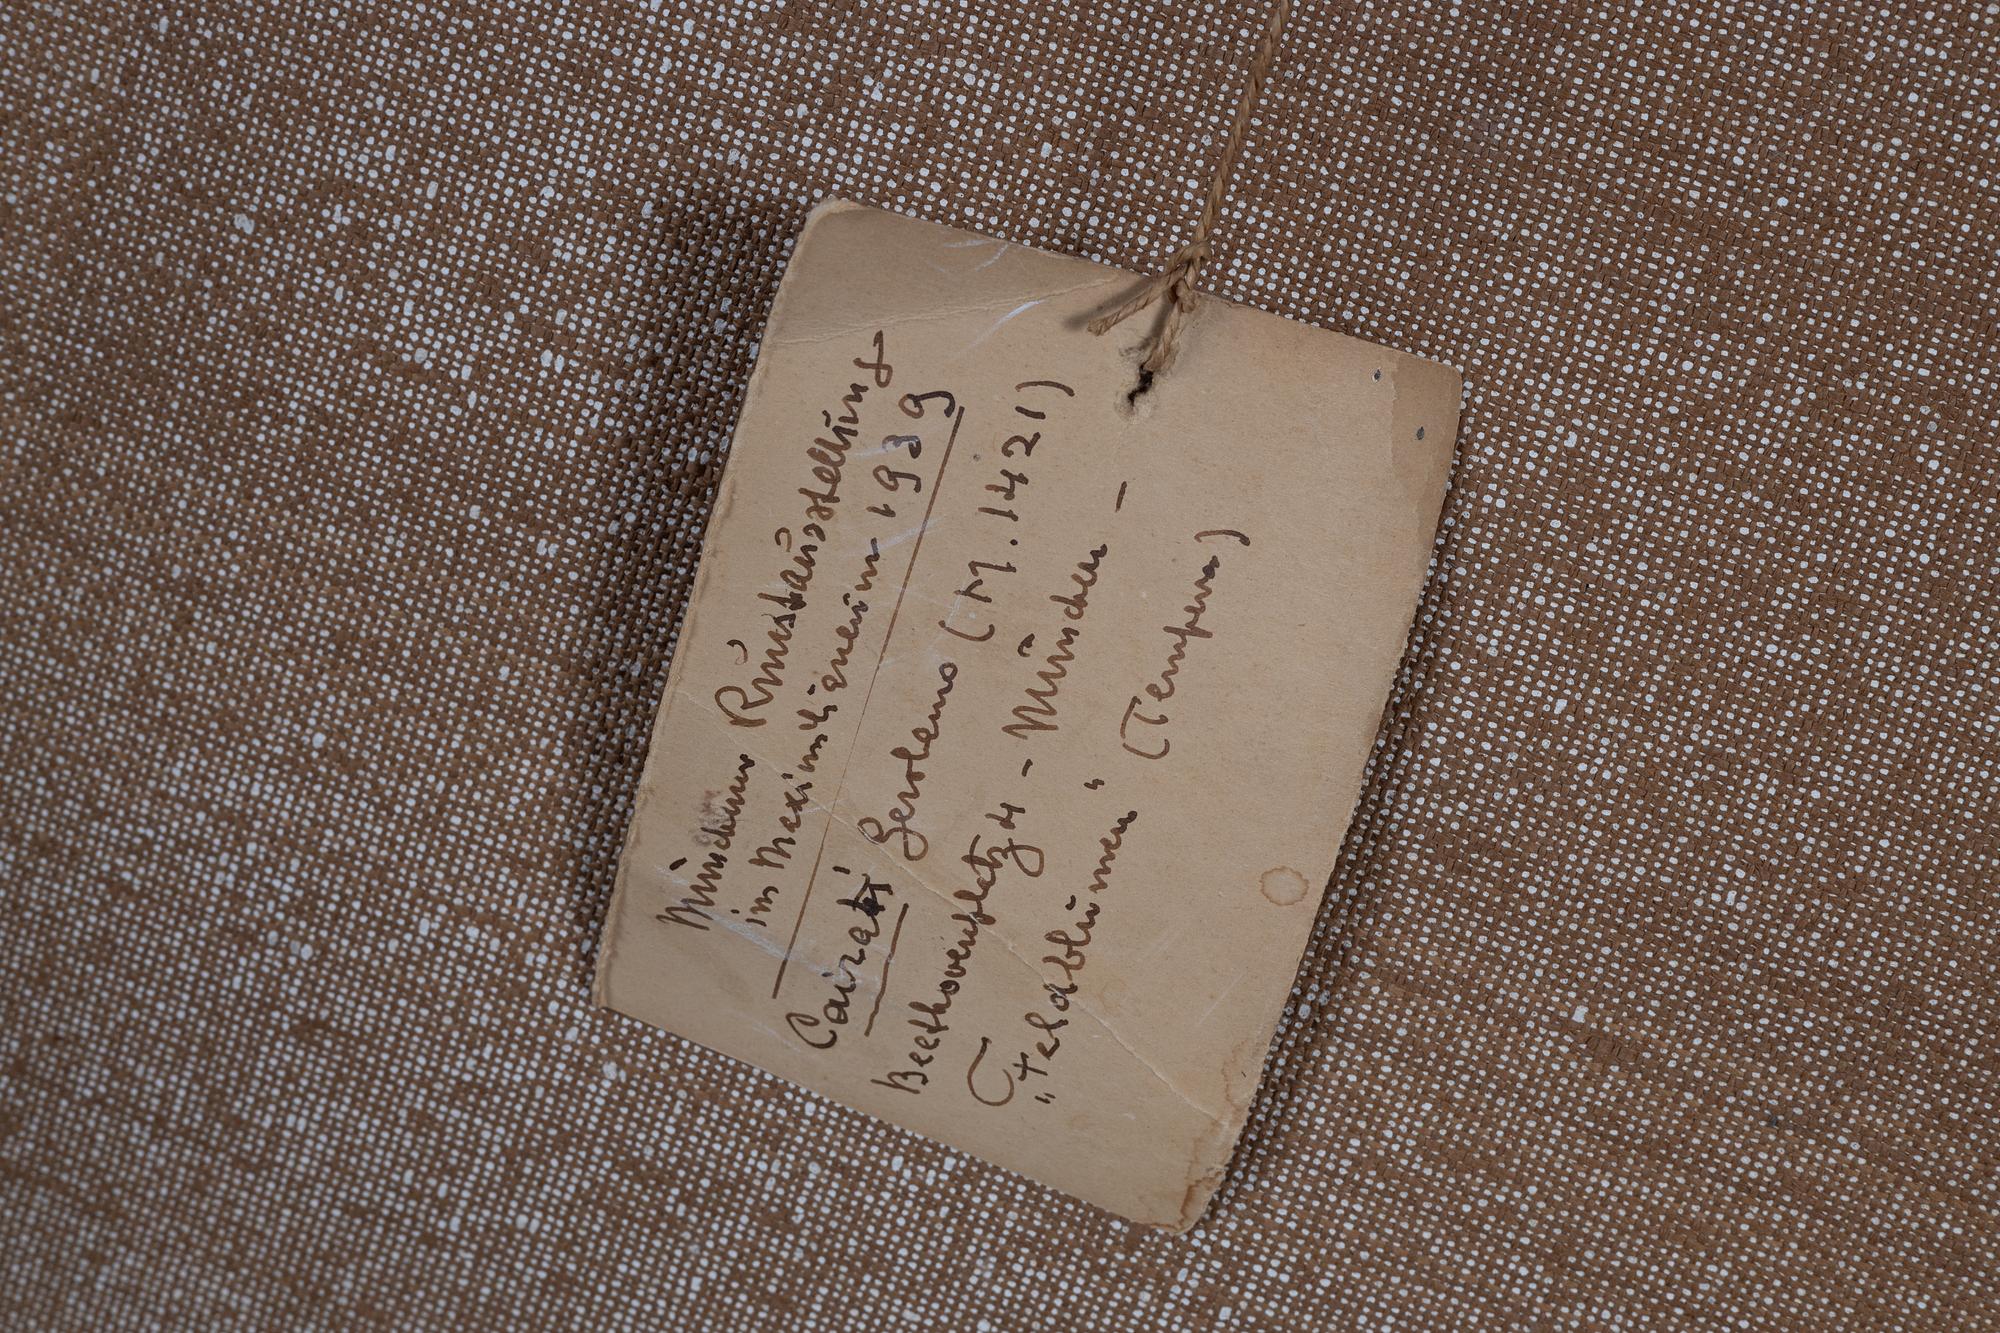 Münchner Kunstausstellung
im Maximilianeum 1939
Cairati Gerolamo (M. 1421)
Beethovenplatz 4 - München -
"Feldblumen" (Tempera)